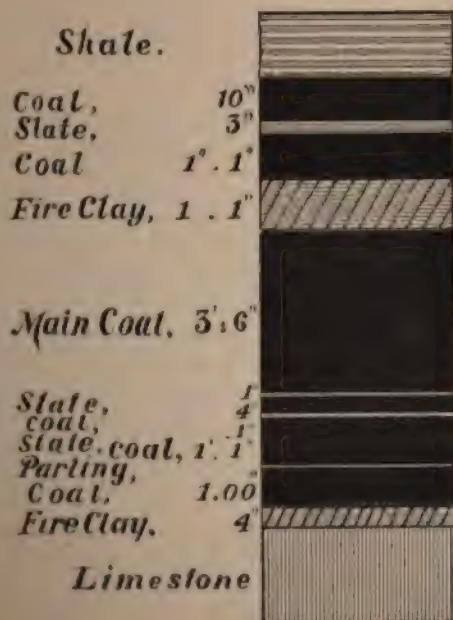 Shale.
Coal, 10"
Slate, 3"
Coal 1" . 1"
Fire Clay, 1 . 1"
Main Coal, 3' : 6"
Slate, 1"
coal, 4"
Slate. 1"
coal, 1' . 1"
Parting,
Coal, 1.00"
Fire Clay. 4"
Limestone